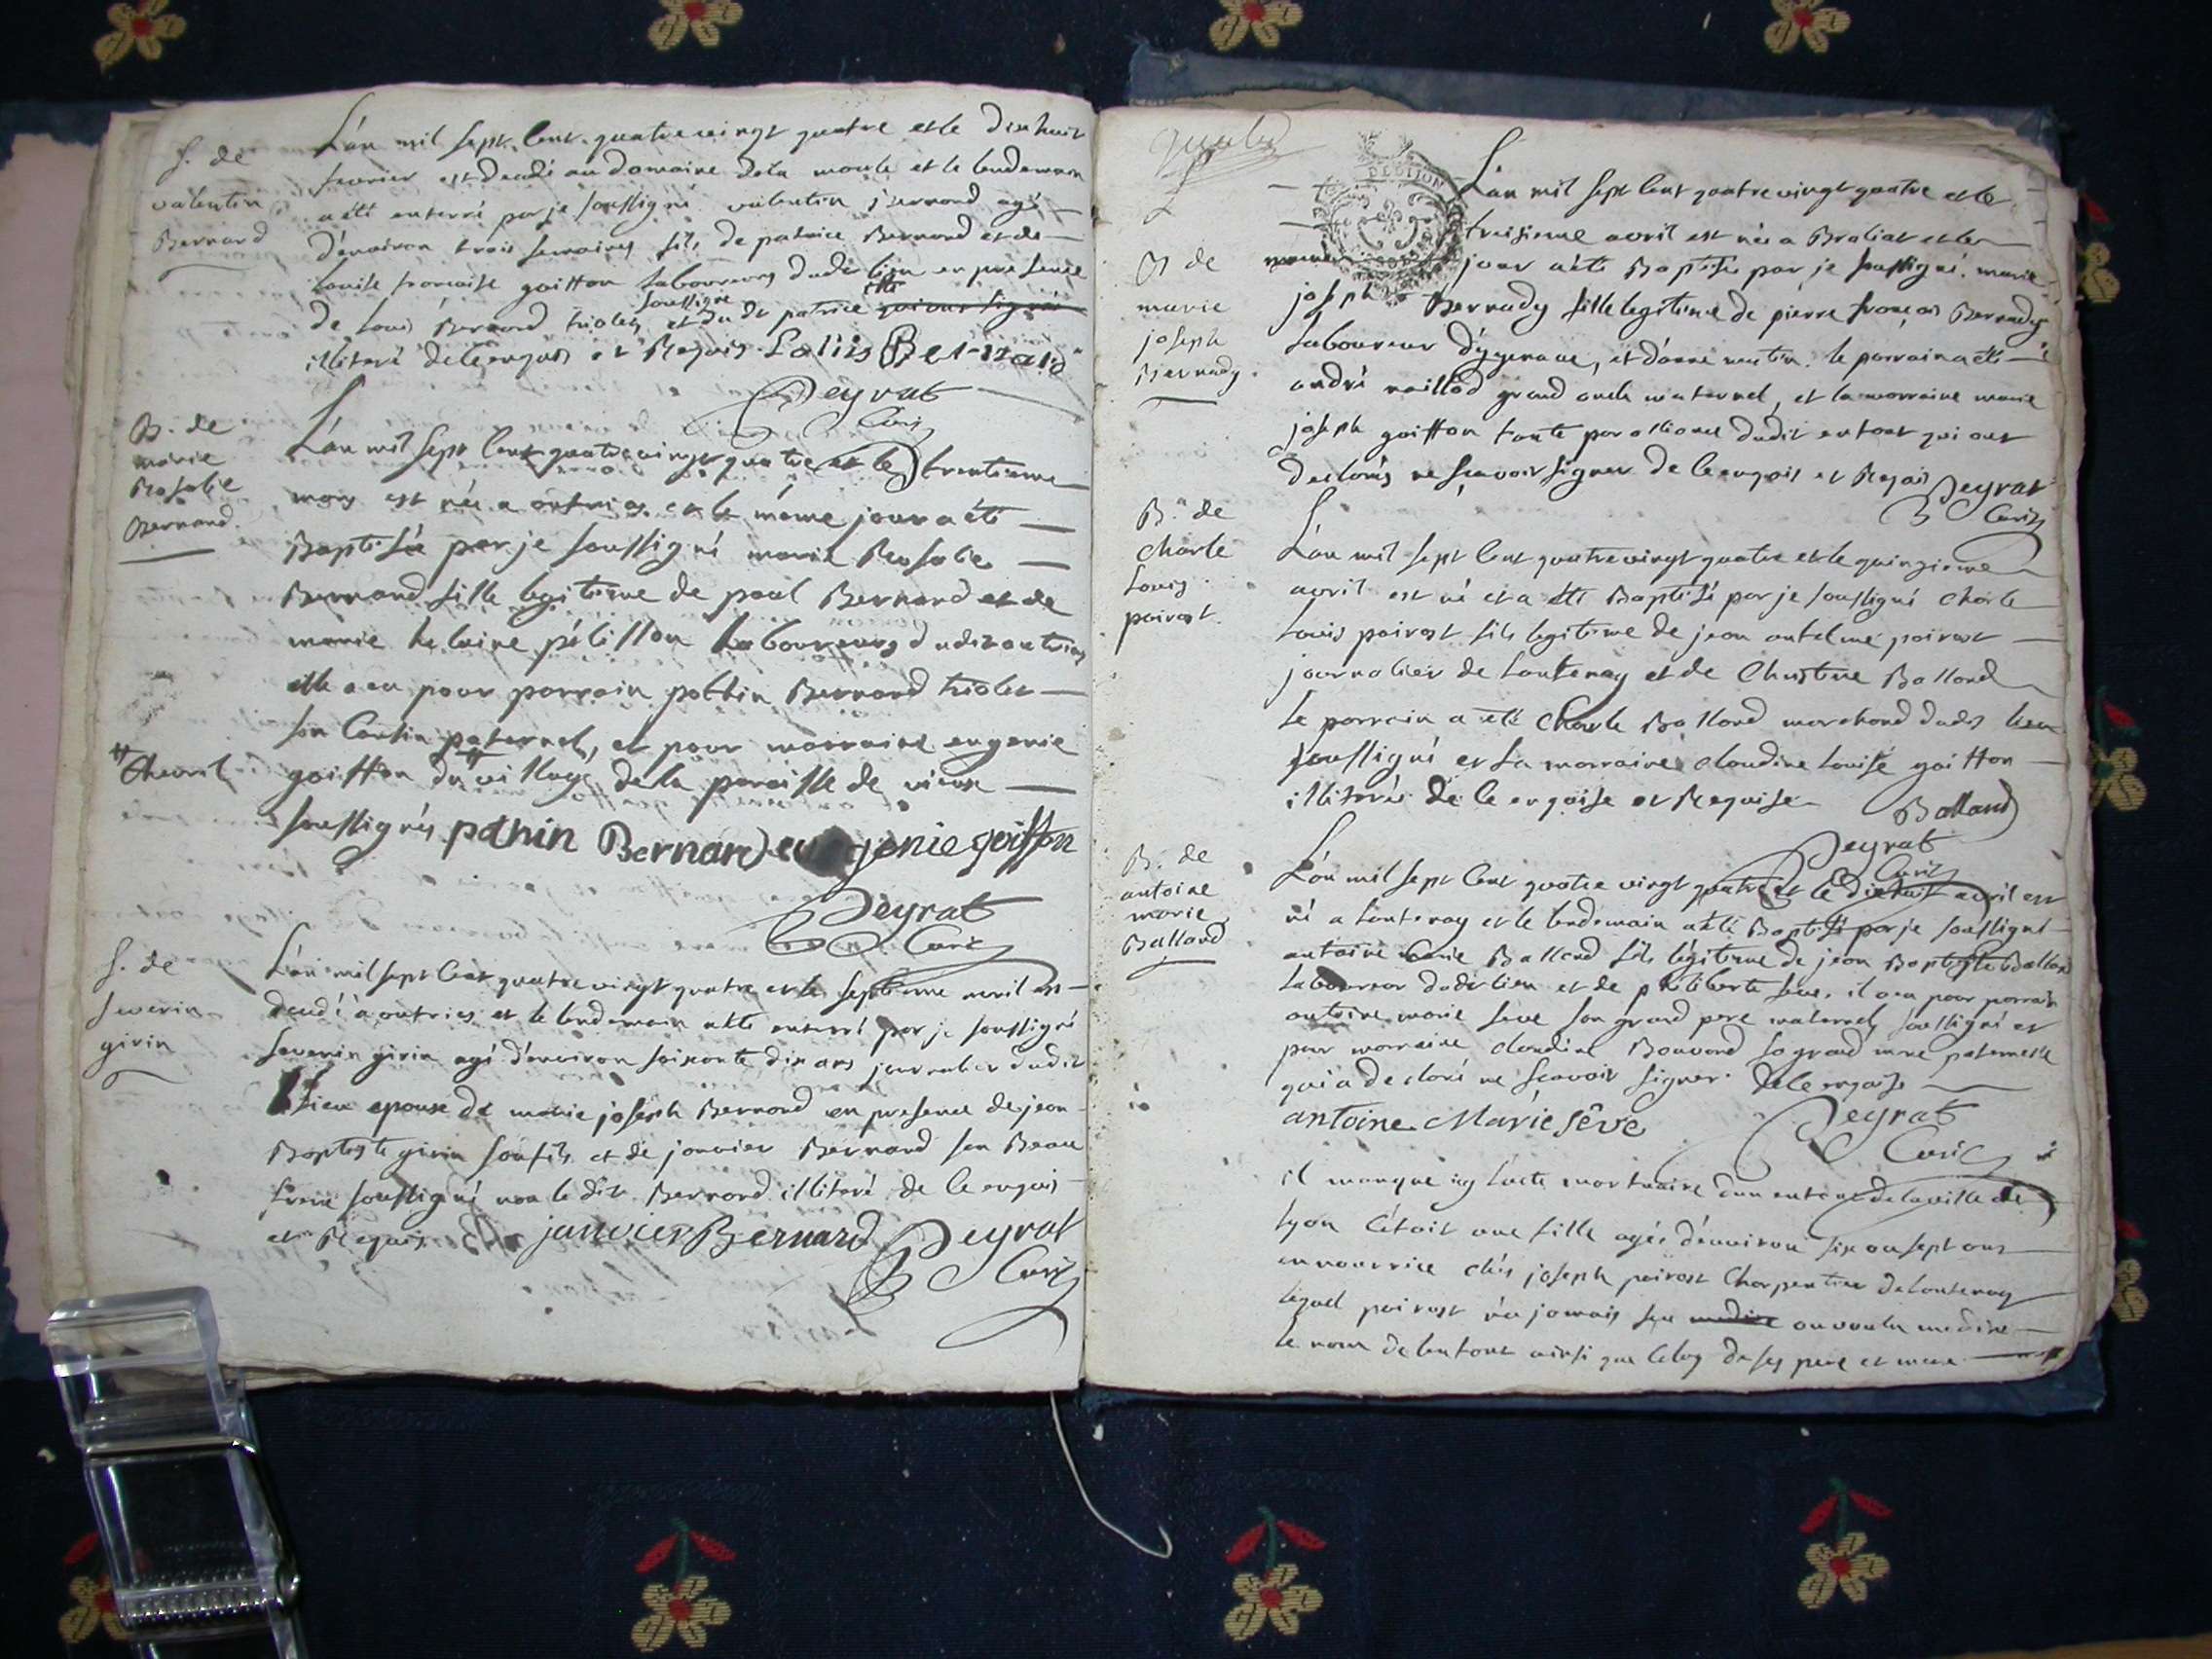 S. de
valentin
Bernard
L'an mil sept cent quatre vingt quatre et le dixhuit
fevrier est decedé au domaine dela et le lendemain
a été enterré par je soussigné valentin Bernard agé
d'environ trois semaines fils de patrice Bernard et de
louise francoise goiffon laboureurs dudit lieu en presence
de louis Bernard triolet soussigné et dudt patrice
illiteré de ce enquis et Requis Louis Bernard
Peyrat
Curé
B. de
marie
Rosalie
Bernard
L'an mil sept cent quatre vingt quatre et le trentieme
mars est née a outriaz et le même jour a été
Baptisée par je soussigné marie Rosalie
Bernard fille legitime de paul Bernard et de
marie helaine pélisson laboureurs dudit outriaz
elle a eu pour parrain pothin Bernard triolet
son Cousin paternel, et pour marraine eugenie
# Chevril
goiffon du # village de la paroisse de vieux
soussignés pothin Bernard eugenie goiffon
Peyrat
Curé
S. de
severin
girin
L'an mil sept cent quatre vingt quatre et le septieme avril est
decedé à outriaz et le lendemain a été enterré par je soussigné
severin girin agé d'environ soixante dix ans journalier dudit
lieu epoux de marie joseph Bernard en presence de jean
Baptiste girin son fils et de janvier Bernard son Beau
frere soussigné non le dit Bernard illiteré de ce enquis
et Requis janvier Bernard Peyrat
Curé
L'an mil sept cent quatre vingt quatre et le
treisieme avril est née a Braliat et le
B de
marie
joseph
Bernady
jour a été Baptisée par je soussigné marie
joseph Bernady fille legitime de pierre françois Bernady
laboureur d'ygenave, et d'anne le parrain a été
andré grand oncle maternel, et la marraine marie
joseph goiffon tante par alliance dudit enfant qui ont
declarés ne sçavoir signer de ce enquis et Requis Peyrat
Curé
B. de
Charle
Louis
poirost
L'an mil sept cent quatre vingt quatre et le quinzieme
avril est né et a été Baptisé par je soussigné Charle
Louis poirost fils legitime de jean antelme poirost
journalier de lantenay et de Christine Balland
le parrain a été Charle Balland marchand dudt lieu
soussigné et la marraine claudine louise goiffon
illiterée de ce enquise et Requise Balland
Peyrat
Curé
B. de
antoine
marie
Balland
L'an mil sept cent quatre vingt quatre et le dixhuit avril est
né a lantenay et le lendemain a été Baptisé par je soussigné
antoine marie Balland fils légitime de jean Baptiste Balland
laboureur dudit lieu et de philiberte seve. il a eu pour parrain
antoine marie seve son grand pere maternel soussigné et
pour marraine claudine Bouvard sa grand mere paternelle
qui a declaré ne sçavoir signer de ce enquise
antoine Marie sêve Peyrat
Curé
il manque icy l'acte mortuaire d'un enfant de la ville de
lyon C'étoit une fille agée d'environ six ou sept ans
en nourrice chés joseph poirost Charpentier de lantenay
lequel poirost n'a jamais sçu ou voulu me dire
le nom de l'enfant ainsi que celuy de ses pere et mere